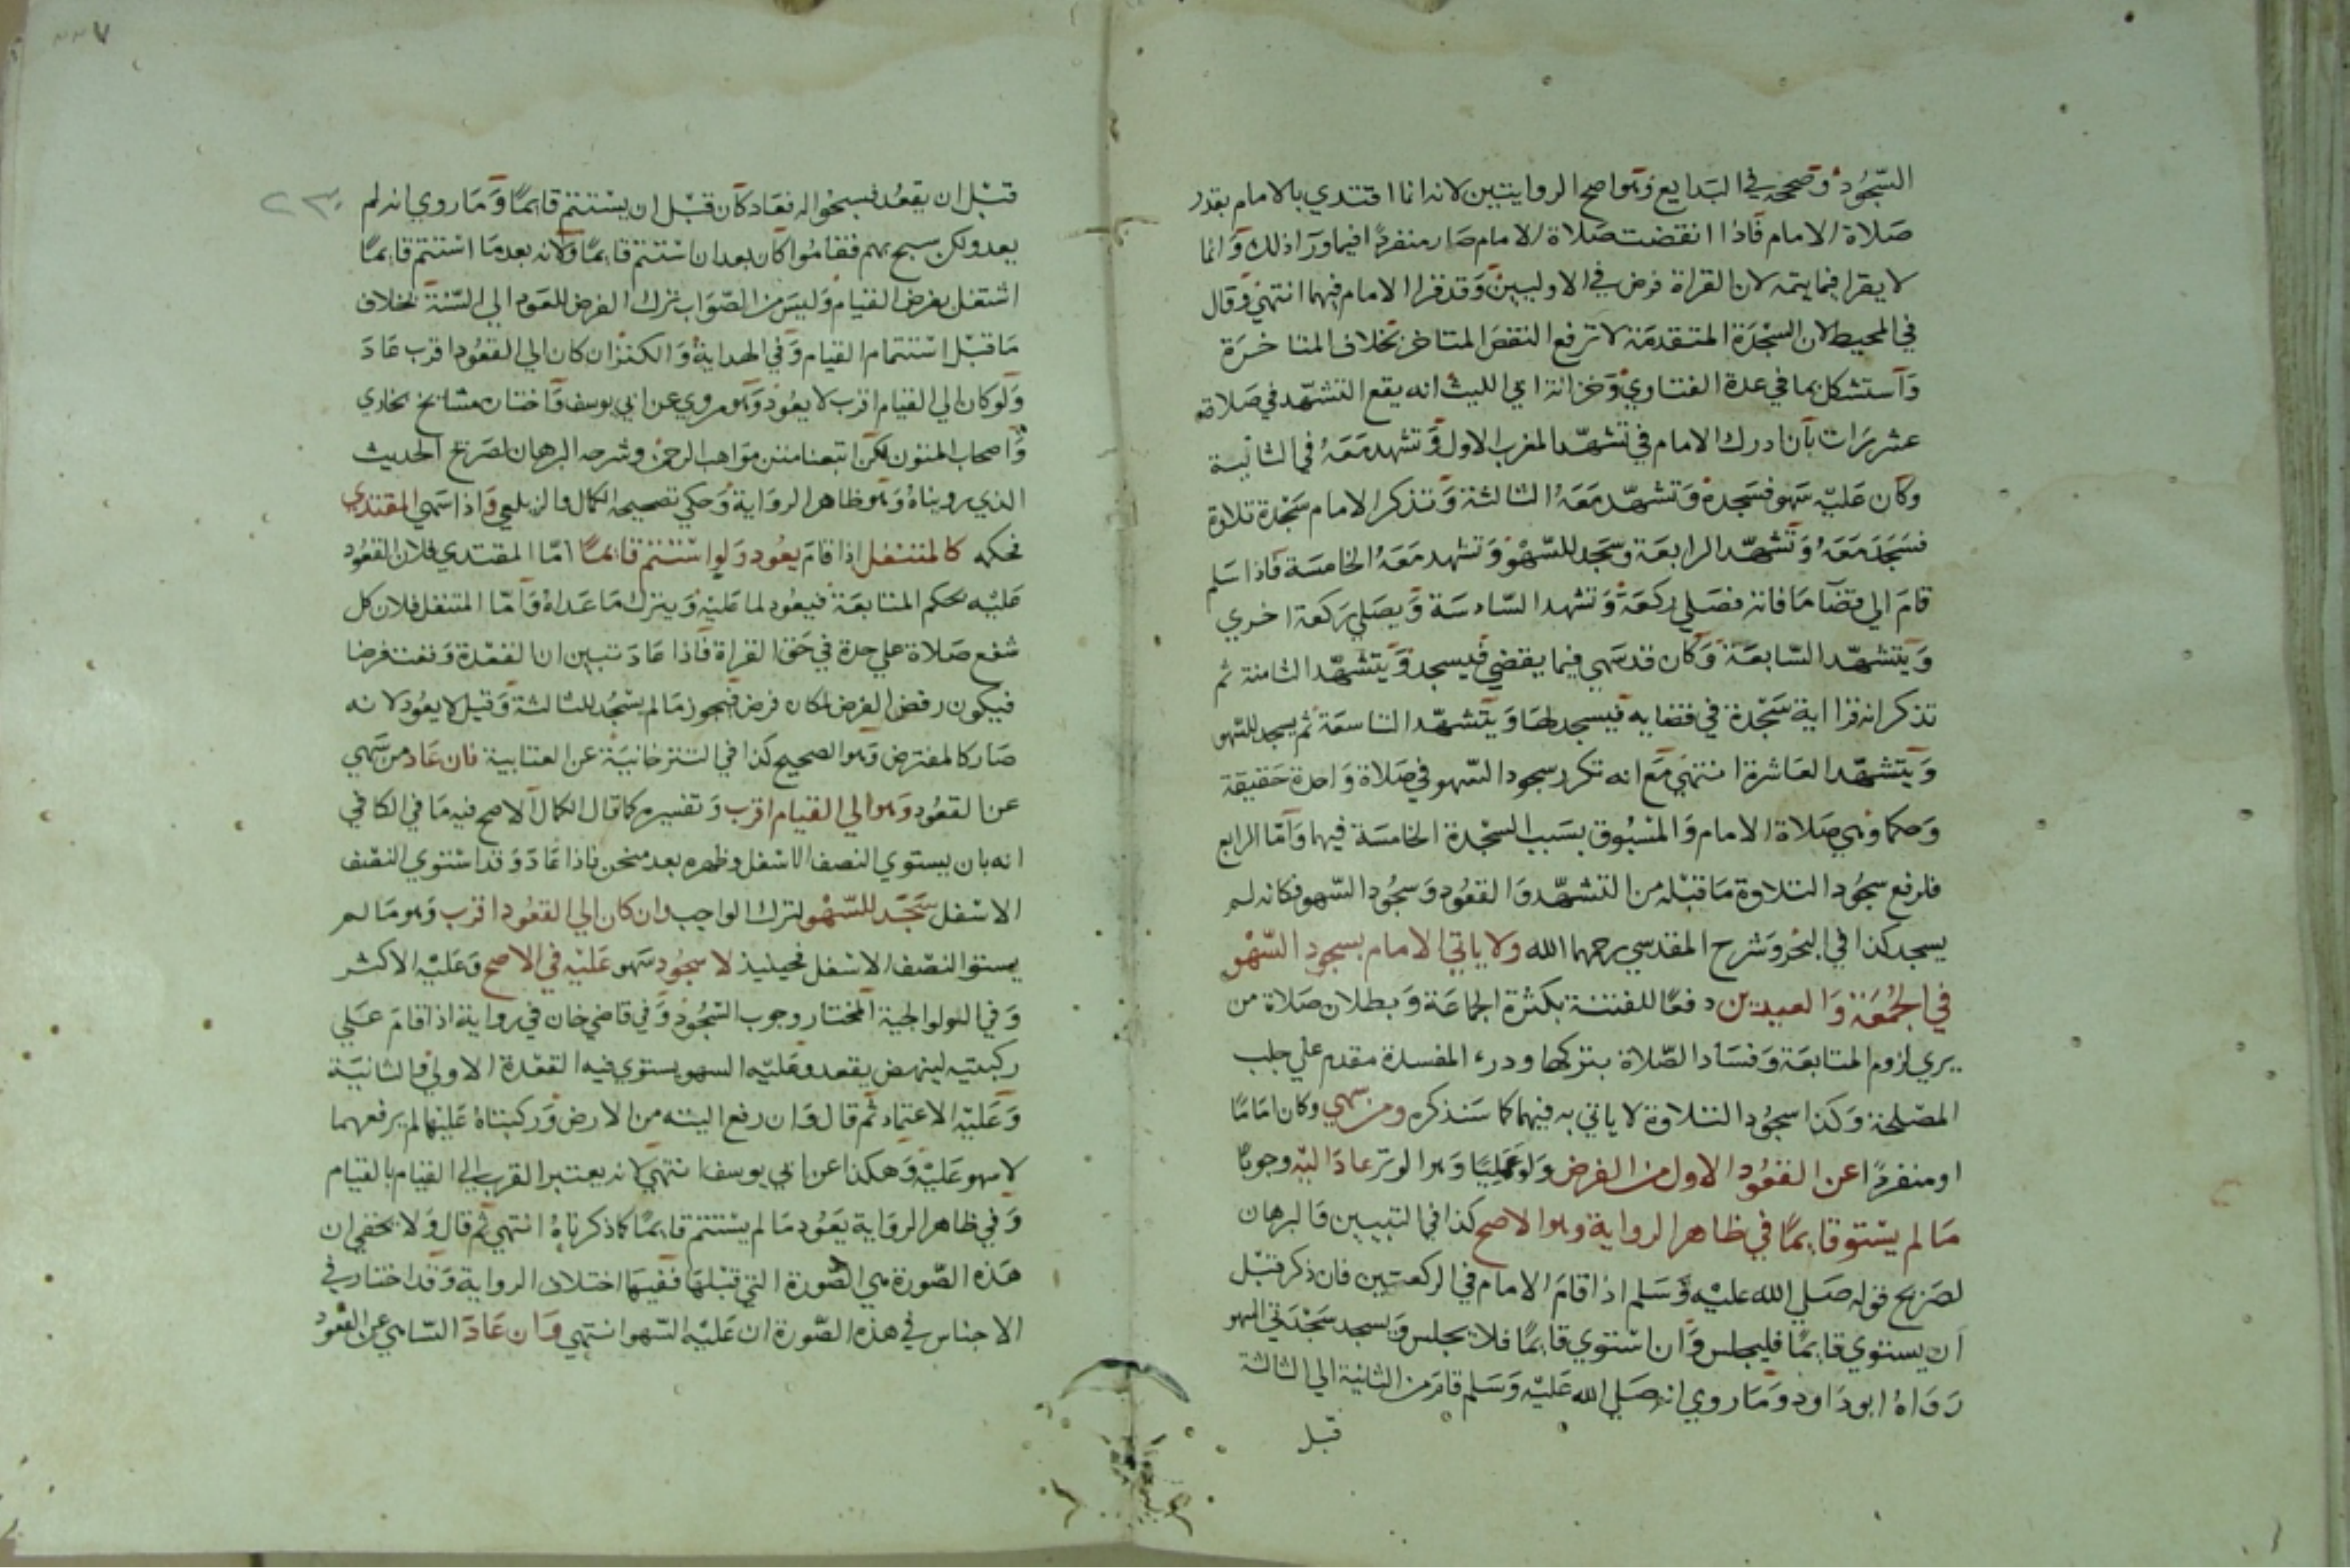 السجود وصححه في البدايع وهو اصح الروايتين لانه انما اقتدي بالامام بقدر
صلاة الامام فاذا انقضت صلاة الامام صار منفردا فيما ورا ذلك وانما
لا يقرا فيما يتمه لان القراة فرض في الاوليين وقد قرا الامام فيهما انتهي وقال
في المحيط لان السجدة المتقدمة لا ترفع النقص المتاخر بخلاف المتاخرة
واستشكل بما في عدة الفتاوي وخزانة ابي الليث انه يقع التشهد في صلاة
عشر مرات بان ادرك الامام في تشهد المغرب الاول وتشهد معه في الثانية
وكان عليه سهو فسجده وتشهد معه الثالثة وتذكر الامام سجدة تلاوة
فسجد معه وتشهد الرابعة وسجد للسهو وتشهد معه الخامسة فاذا سلم
قام الي قضا ما فاته فصلي ركعة وتشهد السادسة ويصلي ركعة اخري
ويتشهد السابعة وكان قد سهي فيما يقضي فيسجد ويتشهد الثامنة ثم
تذكر انه قرا اية سجدة في قضايه فيسجد لها ويتشهد التاسعة ثم يسجد للسهو
ويتشهد العاشرة انتهي مع انه تكرر سجود السهو في صلاة واحدة حقيقة
وحكما وهي صلاة الامام والمسبوق بسبب السجدة الخامسة فيها واما الرابع
فلرفع سجود التلاوة ما قبله من التشهد والقعود وسجود السهو فكانه لم
يسجد كذا في البحر وشرح المقدسي رحمهما الله ولا ياتي الامام بسجود السهو
في الجمعة والعيدين دفعا للفتنة بكثرة الجماعة وبطلان صلاة من
يري لزوم المتابعة وفساد الصلاة بتركها ودرء المفسدة مقدم علي جلب
المصلحة وكذا سجود التلاوة لا ياتي به فيهما كما سنذكره ومن سهي وكان اماما
او منفردا عن القعود الاول من الفرض ولو عمليا وهو الوتر عاد اليه وجوبا
ما لم يستو قايما في ظاهر الرواية وهو الاصح كذا في التبيين والبرهان
لصريح قوله صلي الله عليه وسلم اذا قام الامام في الركعتين فان ذكر قبل
ان يستوي قايما فليجلس وان استوي قايما فلا يجلس ويسجد سجدتي السهو
رواه ابو داود وما روي انه صلي الله عليه وسلم قام من الثانية الي الثالثة
قبل
قبل ان يقعد فسبحوا له فعاد كان قبل ان يستتم قايما وما روي انه لم
يعد ولكن سبح بهم فقاموا كان بعد ان استتم قايما ولانه بعد ما استتم قايما
اشتغل بفرض القيام وليس من الصواب ترك الفرض للعود الي السنة بخلاف
ما قبل استتمام القيام وفي الهداية والكنز ان كان الي القعود اقرب عاد
ولو كان الي القيام اقرب لا يعود وهو مروي عن ابي يوسف واختاره مشايخ بخاري
واصحاب المتون لكن اتبعنا متن مواهب الرحمن وشرحه البرهان لصريح الحديث
الذي رويناه وهو ظاهر الرواية وحكي تصحيحه الكمال والزيلعي واذا سهي المقتدي
فحكمه كالمتنفل اذا قام يعود ولو استتم قايما اما المقتدي فلان القعود
عليه بحكم المتابعة فيعود لما عليه ويترك ما عداه واما المتنفل فلان كل
شفع صلاة علي حدة في حق القراة فاذا عاد تبين ان القعدة وقعت فرضا
فيكون رفض الفرض لمكان فرض فيجوز ما لم يسجد للثالثة وقيل لا يعود لانه
صار كالمفترض وهو الصحيح كذا في التترخانية عن العتابية فان عاد من سهي
عن القعود وهو الي القيام اقرب وتفسيره كما قال الكمال الاصح فيه ما في الكافي
انه بان يستوي النصف الاسفل وظهره بعد منحن فاذا عاد وقد استوي النصف
الاسفل سجد للسهو لترك الواجب وان كان الي القعود اقرب وهو ما لم
يستو النصف الاسفل فحينيذ لا سجود سهو عليه في الاصح وعليه الاكثر
وفي الولوالجية المختار وجوب السجود وفي قاضي خان في رواية اذا قام علي
ركبتيه لينهض يقعد وعليه السهو يستوي فيه القعدة الاولي والثانية
وعليه الاعتماد ثم قال وان رفع اليته من الارض وركبتاه عليها لم يرفعهما
لا سهو عليه وهكذا عن ابي يوسف انتهي لانه يعتبر القرب الي القيام بالقيام
وفي ظاهر الرواية يعود ما لم يستتم قايما كما ذكرناه انتهي ثم قال ولا يخفي ان
هذه الصورة هي الصورة التي قبلها ففيها اختلاف الرواية وقد اختار في
الاجناس في هذه الصورة ان عليه السهو انتهي وان عاد الساهي عن القعود